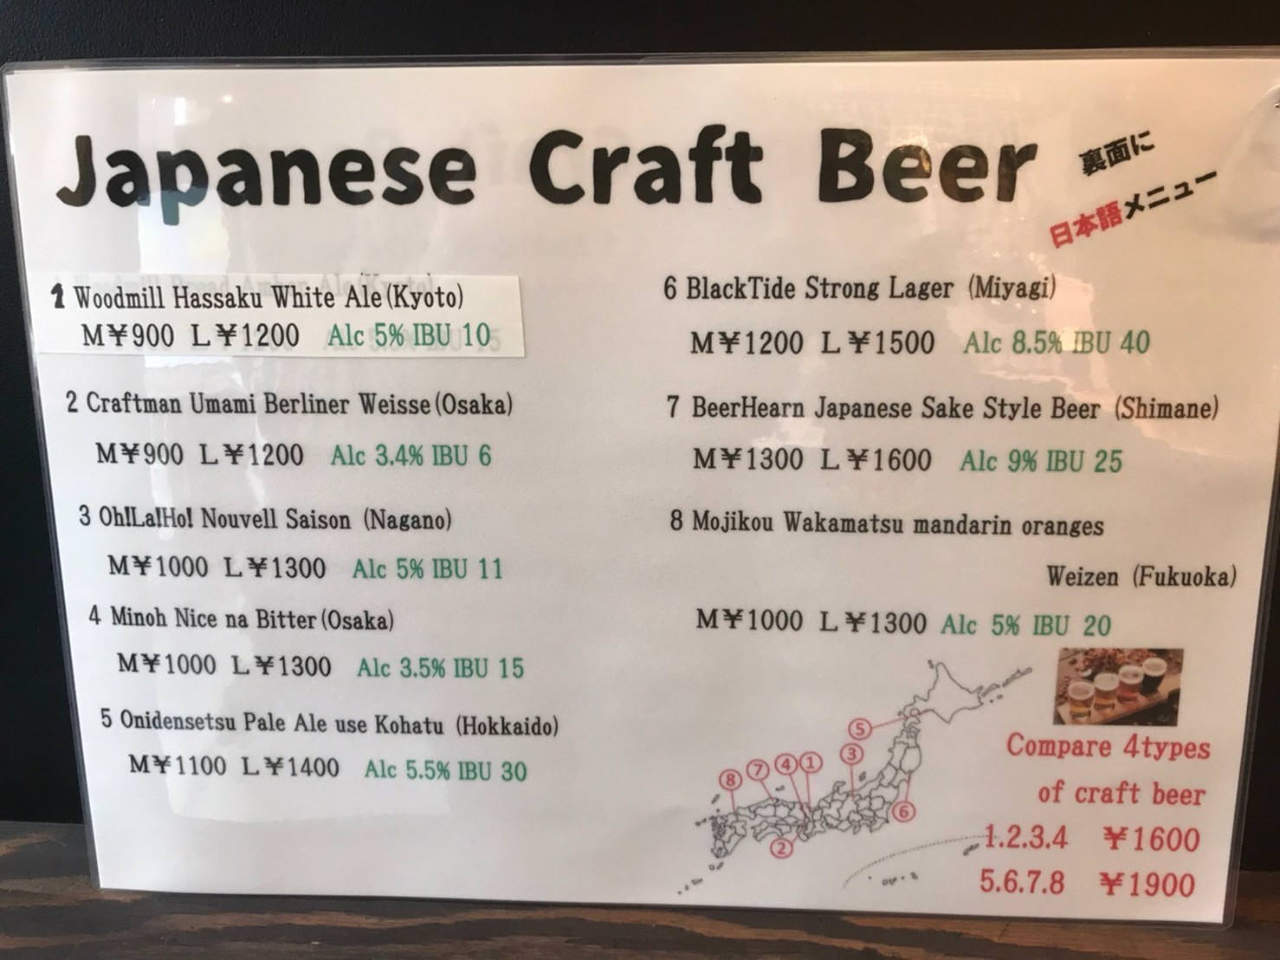 Japanese Craft Beer
裏面に
日本語メニュー
1 Woodmill Hassaku White Ale (Kyoto)
M¥900 L¥1200 Alc 5% IBU 10
2 Craftman Umami Berliner Weisse (Osaka)
M¥900 L¥1200 Alc 3.4% IBU 6
3 Oh!La!Ho! Nouvell Saison (Nagano)
M¥1000 L¥1300 Alc 5% IBU 11
4 Minoh Nice na Bitter (Osaka)
M¥1000 L¥1300 Alc 3.5% IBU 15
5 Onidensetsu Pale Ale use Kohatu (Hokkaido)
M¥1100 L¥1400 Alc 5.5% IBU 30
6 BlackTide Strong Lager (Miyagi)
M¥1200 L¥1500 Alc 8.5% IBU 40
7 BeerHearn Japanese Sake Style Beer (Shimane)
M¥1300 L¥1600 Alc 9% IBU 25
8 Mojikou Wakamatsu mandarin oranges
Weizen (Fukuoka)
M¥1000 L¥1300 Alc 5% IBU 20
⑤
⑧ ⑦ ④ ① ③
⑥
②
Compare 4types
of craft beer
1.2.3.4 ¥1600
5.6.7.8 ¥1900